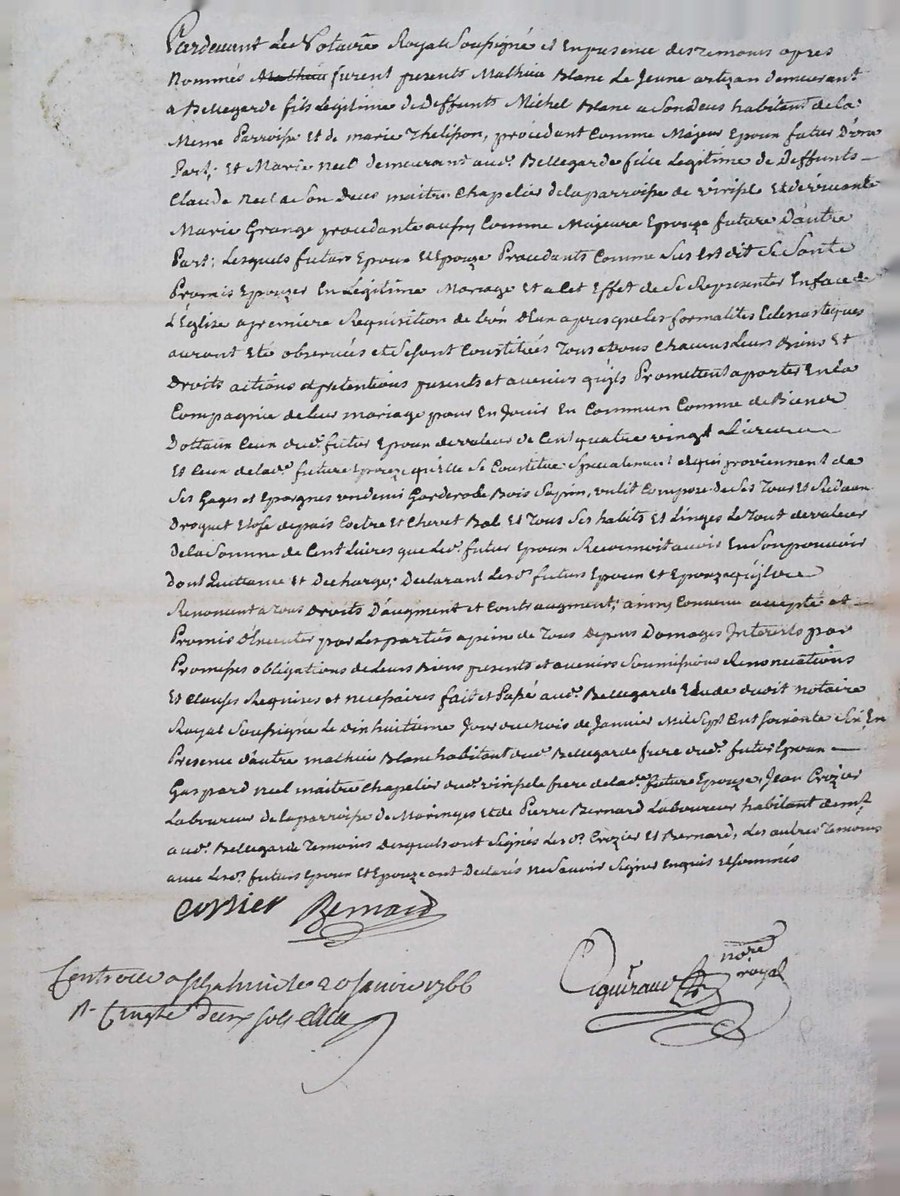 Pardevant Le Notaire Royal Soussigné et En presence des temoins apres
Nommés Mathieu furent presents Mathieu Blanc Le Jeune artizan demeurant
a Bellegarde fils Legitime de Deffunts Michel Blanc habitant de la
Meme Parroisse Et de marie Thelisson, procedant Comme Majeur Epoux futur D'une
Part; Et Marie neel demeurant aud. Bellegarde fille Legitime de Deffunts
Claude neel de Son Vivant maitre Chapelier de la parroisse de viricelle et de vivante
Marie Grange procedante aussy Comme Majeure Epouze future D'autre
Part; Lesquels futur Epoux et Epouze Procedants Comme Sus est dit Se Sont
Promis Epouzer En Legitime Mariage Et a Cet Effet de Se Representer En face de
L'Eglise a premiere Requisition de L'un D'eux apres que les formalités Eclesiastiques
auront Eté observées et Se sont Constitués Tous et Uns Chacuns Leurs Biens Et
Droits actions et pretentions presents et avenirs qu'ils Promettent aporter En la
Compagnie de leur mariage pour En Jouir En Commun Comme de Biens
Dottaux Ceux dud. futur Epoux de valeur de Cent quatre vingt Livres
Et Ceux de lad. future Epouze qu'elle Se Constitue Specialement et qui proviennent de
Ses Gages et Epargnes un demi Garderobe Bois Sapin, un lit Compozé de Ses Tour Et Rideaux
Droguet Et Tous Ses habits Et Linges Le Tout de valeur
De la Somme de Cent Livres que Led. futur Epoux Reconnoit avoir En Son pouvoir
Dont Quittance Et Decharge; Declarant Les d. futurs Epoux et Epouze qu'ils
Renoncent a tous Droits D'augment et Contraugment; ainsy Convenu accepté et
Promis D'Executer par Les parties a peine de Tous Depens Domages Interets par
Promesses obligations de Leurs Biens presents et avenirs Soumissions Renonciations
Et Clauses Requises et necessaires fait et Passé aud. Bellegarde Etude dudit notaire
Royal Soussigné Le dix huitieme Jour du mois de Janvier Mil Sept Cent Soixante Six En
Presence d'autre mathieu Blanc habitant dud. Bellegarde frere dud. futur Epoux
Gaspard neel maitre Chapelier dud. viricelle frere de lad. future Epouze, Jean Crozier
Laboureur de la parroisse de Maringes Et de Pierre Bernard Laboureur habitant
aud. Bellegarde Temoins desquels ont Signés Les d. Crozier Et Bernard, Les autres Temoins
avec Les d. futurs Epoux Et Epouze ont Declarés ne Savoir Signer Enquis et Sommés
Corsier Bernard
nore
royal
Controllé a St Galmier le 20 Janvier 1766
R. Trente deux sols